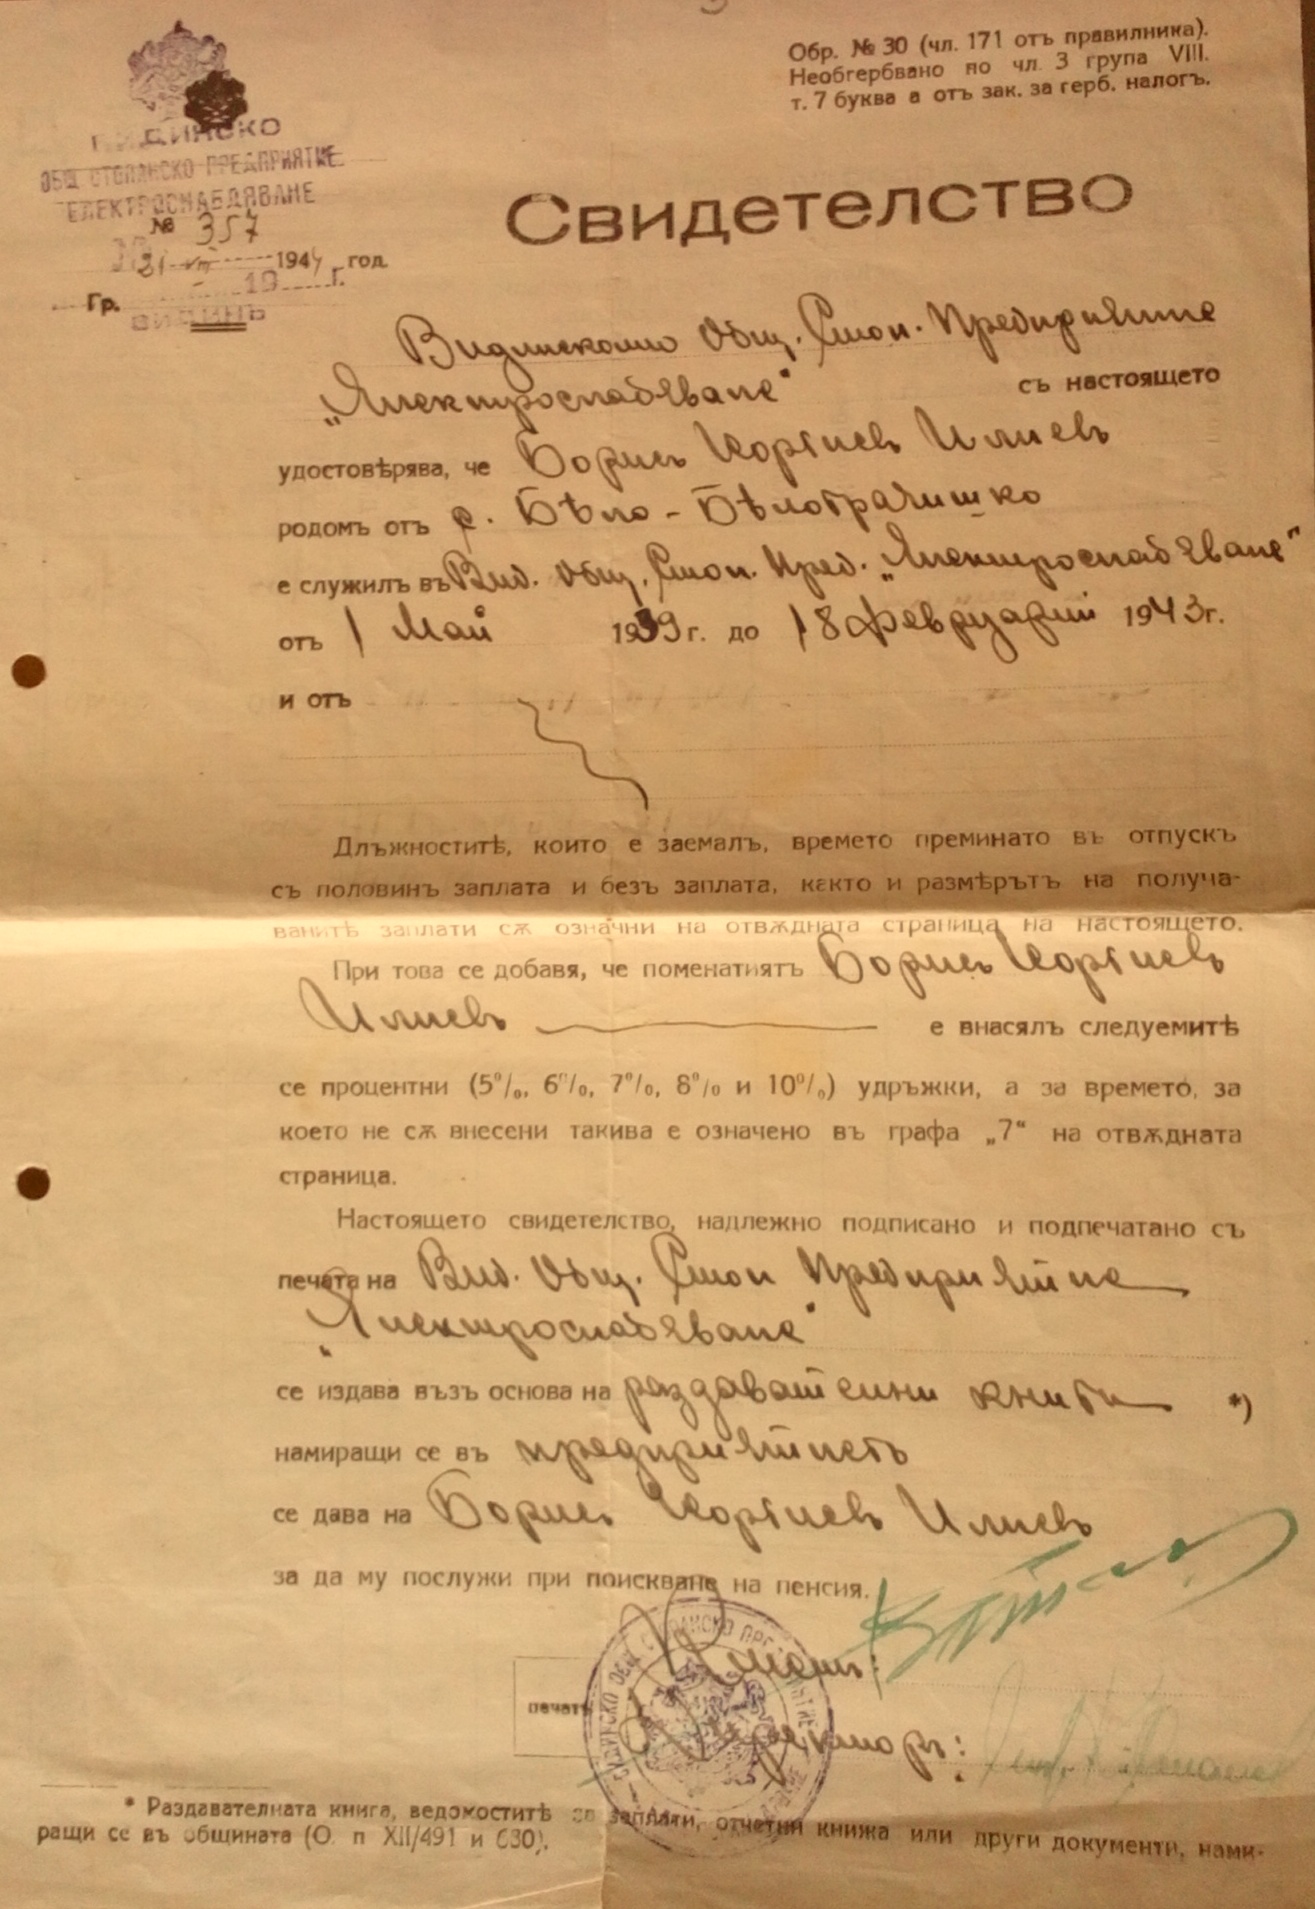 Обр. № 30 (чл. 171 отъ правилника).
Необгербвано по чл. 3 група VIII.
т. 7 буква а отъ зак. за герб. налогъ.
ВИДИНСКО
ОБЩ. СТОПАНСКО ПРЕДПРИЯТИЕ
ЕЛЕКТРОСНАБДЯВАНЕ
№ 357
31 VIII 1944 год.
19 г.
Гр.
ВИДИНЪ
Свидетелство
Видинското Общ. Стоп. Предприятие
„Електроснабдяване" съ настоящето
удостовѣрява, че Борисъ Георгиевъ Илиевъ
родомъ отъ с. Бѣло - Бѣлоградчишко
е служилъ въ Вид. Общ. Стоп. Пред. „Електроснабдяване"
отъ 1 Май 1939 г. до 18 февруарий 1943 г.
и отъ
Длъжноститѣ, които е заемалъ, времето преминато въ отпускъ
съ половинъ заплата и безъ заплата, както и размѣрътъ на получа-
ванитѣ заплати сѫ означни на отвѫдната страница на настоящето.
При това се добавя, че поменатиятъ Борисъ Георгиевъ
Илиевъ е внасялъ следуемитѣ
се процентни (5%, 6%, 7%, 8% и 10%) удръжки, а за времето, за
което не сѫ внесени такива е означено въ графа „7" на отвѫдната
страница.
Настоящето свидетелство, надлежно подписано и подпечатано съ
печата на Вид. Общ. Стоп Предприятие
„Електроснабдяване"
се издава възъ основа на раздавателни книги *)
намиращи се въ предприятието
се дава на Борисъ Георгиевъ Илиевъ
за да му послужи при поискване на пенсия.
Кметъ:
печатъ
Директоръ:
* Раздавателната книга, ведомоститѣ за заплати, отчетни книжа или други документи, нами-
ращи се въ общината (О. п XII/491 и 630).